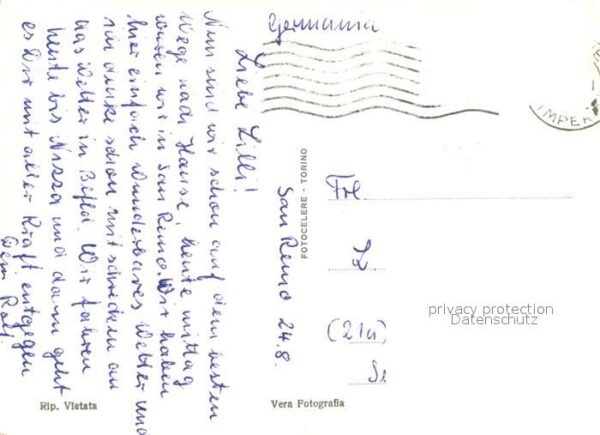 Germania
Liebe Lilli!
Nun sind wir schon auf dem besten
Wege nach Hause, heute mittag
waren wir in San Remo. Wir haben
hier einfach wunderbares Wetter und
ich denke schon mit schrecken an
das Wetter in Bsfld. Wir fahren
heute bis Nizza und dann geht
es Dir mit aller Kraft entgegen
Dein Rolf.
San Remo 24.8.
IMPER
FOTOCELERE - TORINO
Frl.
L
(21a)
privacy protection
Datenschutz
Rip. Vietata
Vera Fotografia